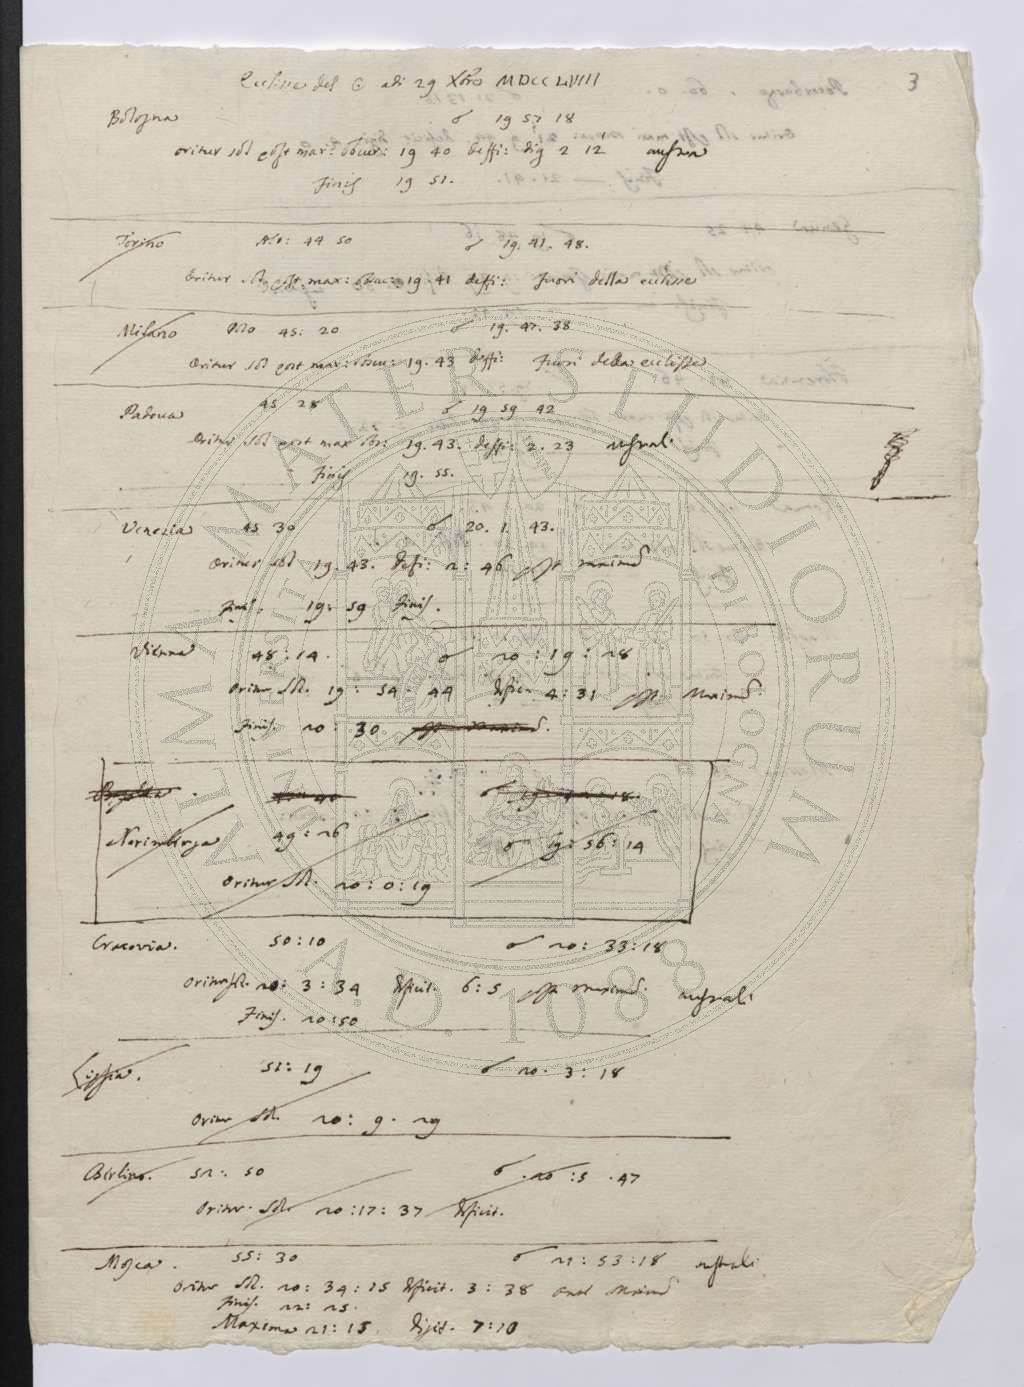 3
Eclisse del ☉ adi 29 Xbro MDCCLVIII
Bologna ☌ 19 57 18
oritur sol post max: obscur: 19 40 deffi: dig 2 12 austra
Finis 19 51.
Torino Alt: 44 50 ☌ 19. 41. 48.
Oritur sol post max: obscu: 19. 41 deffi: Fuori della eclisse
Milano Alto 45: 20 ☌ 19. 47. 38
Oritur sol post max: obscu: 19. 43 deffi: Fuori della eclisse
Padova 45 28 ☌ 19 59 42
Oritur sol post max obs: 19. 43. deffi: 2. 23 australi
Finis 19. 55.
Venezia 45 30 ☌ 20. 1. 43.
Oritur sol 19. 43. defi: 2: 46 post maximã
Finis. 19: 59 Finis.
Vienna 48: 14. ☌ 20: 19: 28
Oritur Sol. 19: 54. 44 defic. 4: 31 post Maximã.
Finis. 20: 30
☌
Norimberga 49: 26 ☌ 19: 56: 14
Oritur Sol. 20: 0: 19
Cracovia. 50: 10 ☌ 20: 33: 18
Oritur sol. 20: 3: 34 deficit. 6: 5 post maximã. australi
Finis. 20: 50
Lipsia. 51: 19 ☌ 20. 3: 18
Oritur Sol. 20: 9. 29
Berlino. 52: 50 ☌ .20: 5 .47
Oritur. Sol. 20: 17: 37 deficit.
Mosca. 55: 30 ☌ 21: 53: 18 australi
Oritur Sol. 20: 34: 25 deficit. 3: 38 ante Maximã
Finis. 22: 25.
Maxima 21: 15. digit. 7: 20
ALMA MATER STUDIORUM
A.D. 1088